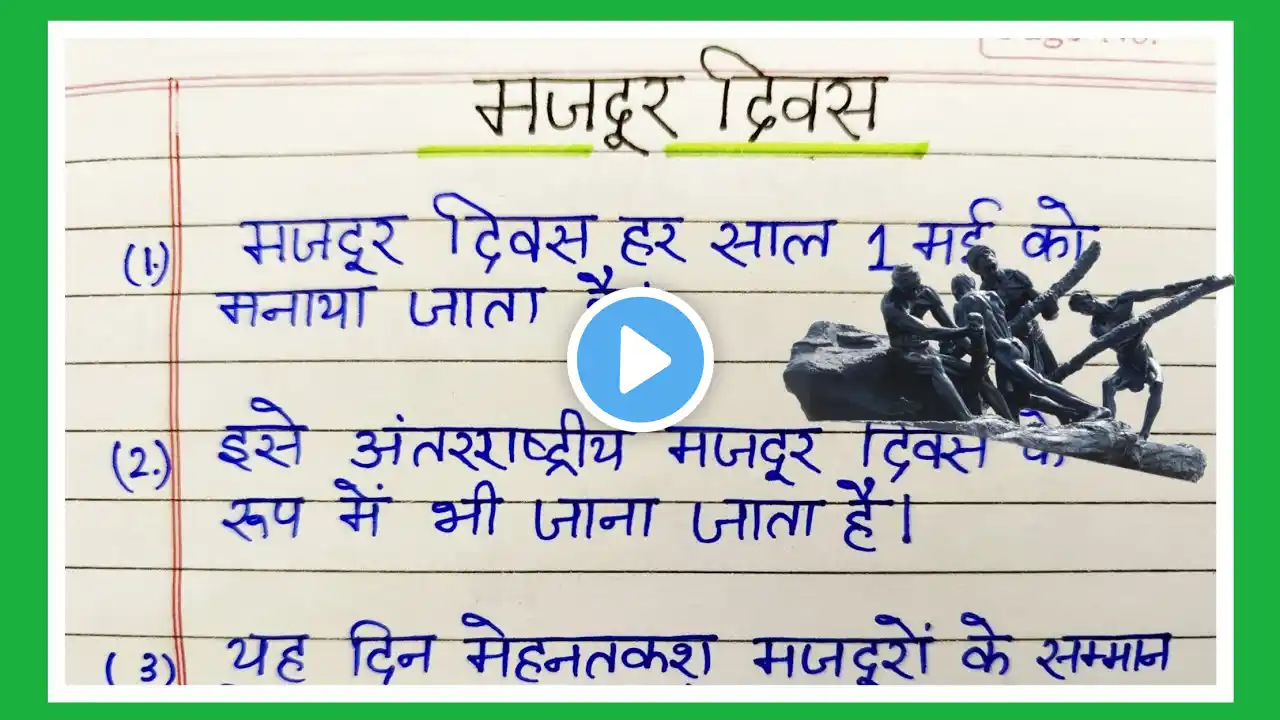 मजदूर दिवस
(1.) मजदूर दिवस हर साल 1 मई को
मनाया जाता है।
(2.) इसे अंतरराष्ट्रीय मजदूर दिवस के
रूप में भी जाना जाता है।
(3) यह दिन मेहनतकश मजदूरों के सम्मान